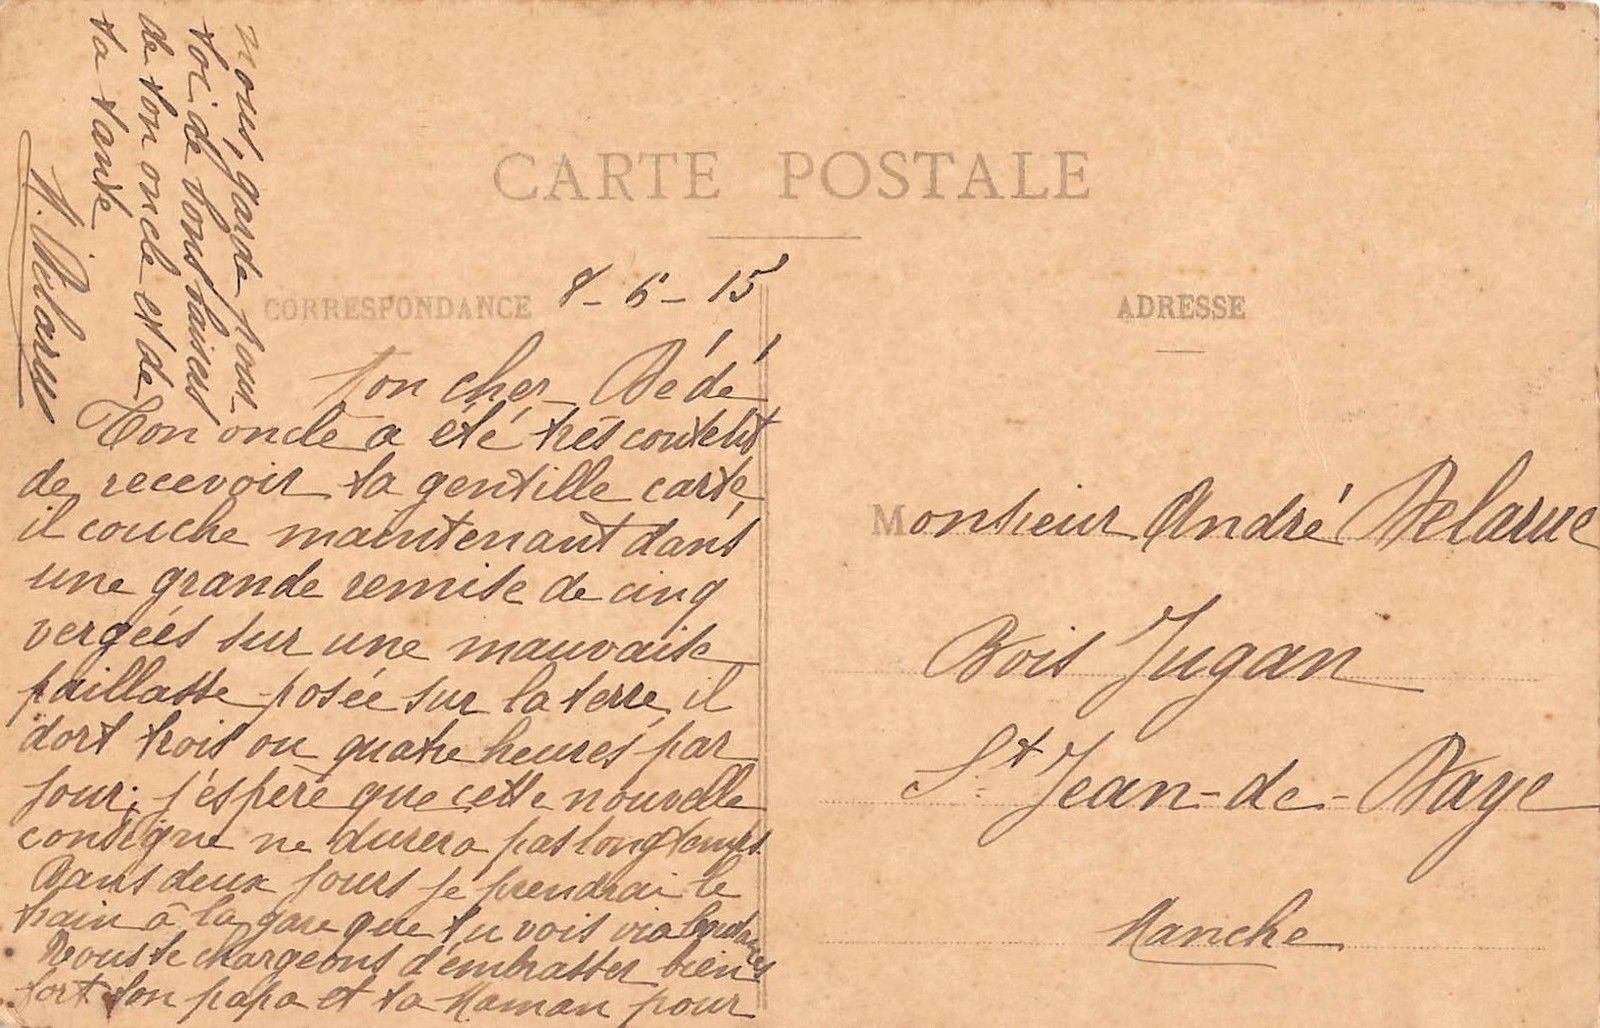 CARTE POSTALE
CORRESPONDANCE
8-6-15
Mon cher Dédé
Ton oncle a été très content
de recevoir ta gentille carte,
il couche maintenant dans
une grande remise de cinq
vergées sur une mauvaise
paillasse posée sur la terre, il
dort trois ou quatre heures par
jour; j'espère que cette nouvelle
consigne ne durera pas longtemps.
Dans deux jours je prendrai le
train à la gare que tu vois via
Nous te chargeons d'embrasser bien
fort ton papa et ta Maman pour
nous, garde pour
toi de bons baisers
de ton oncle et de
ta tante
A. Delarue
ADRESSE
Monsieur André Delarue
Bois Jugan
St Jean-de-Daye
Manche